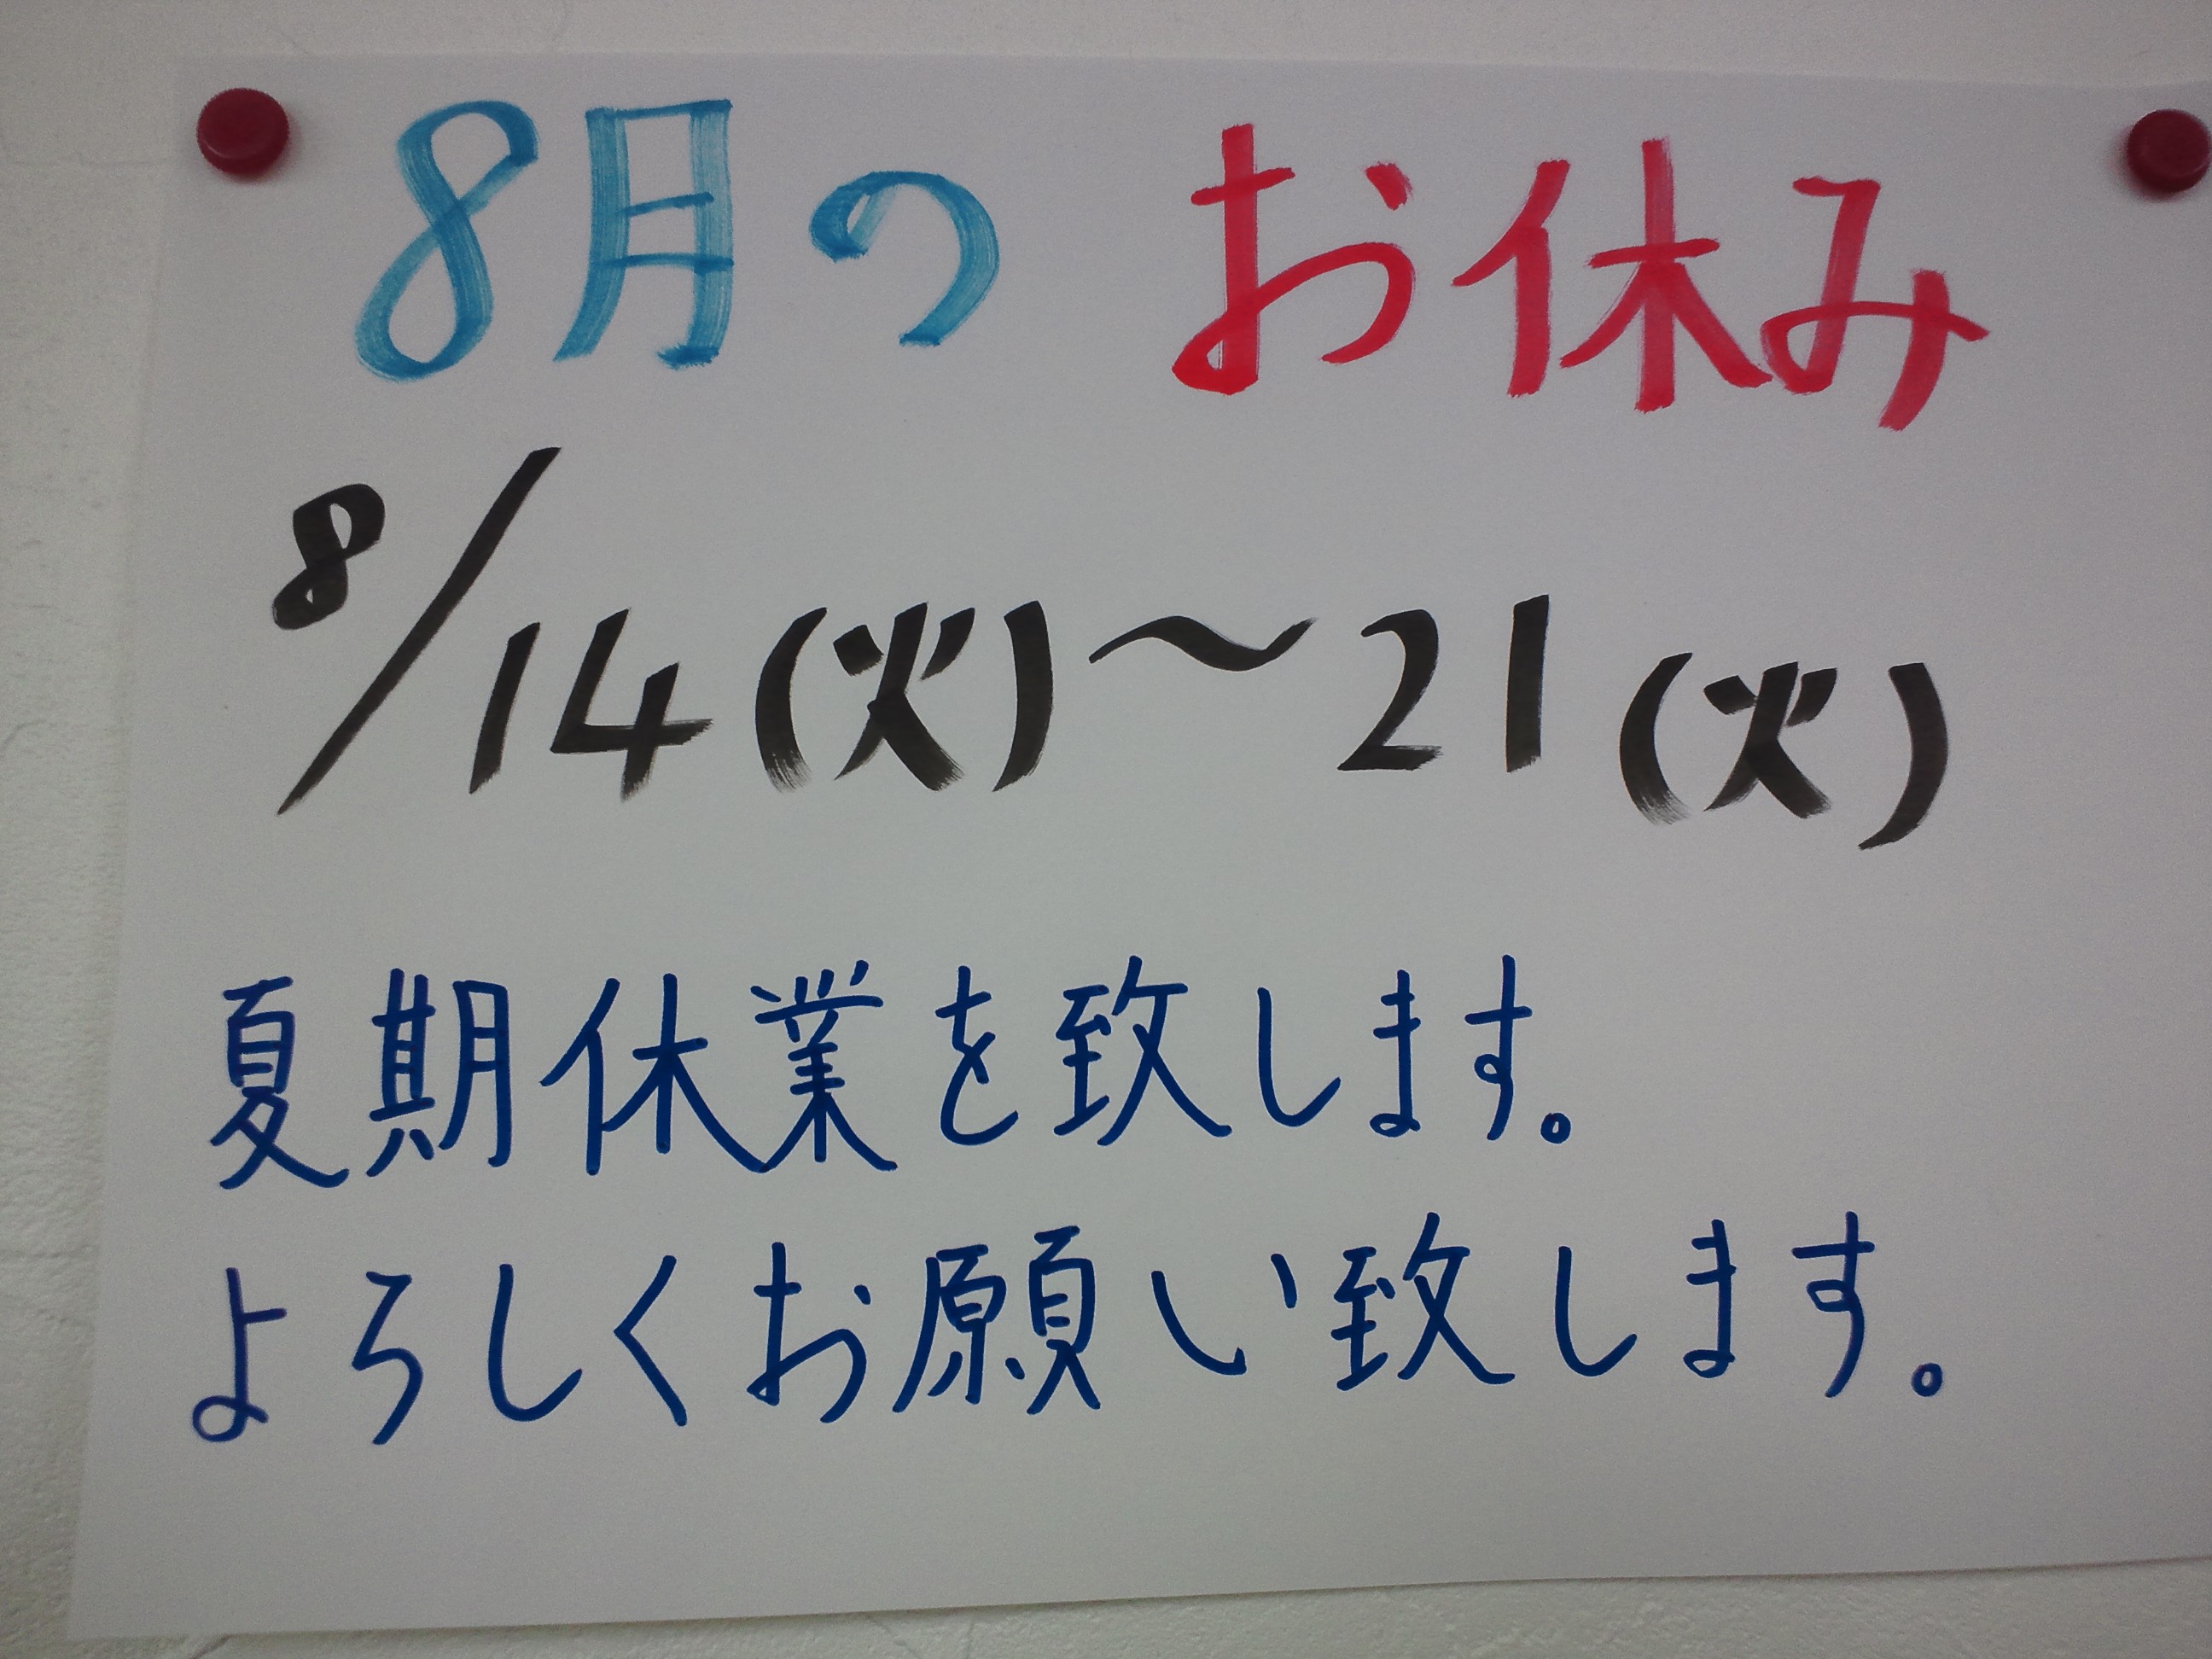 8月の お休み
8/14(火)～21(火)
夏期休業を致します。
よろしくお願い致します。